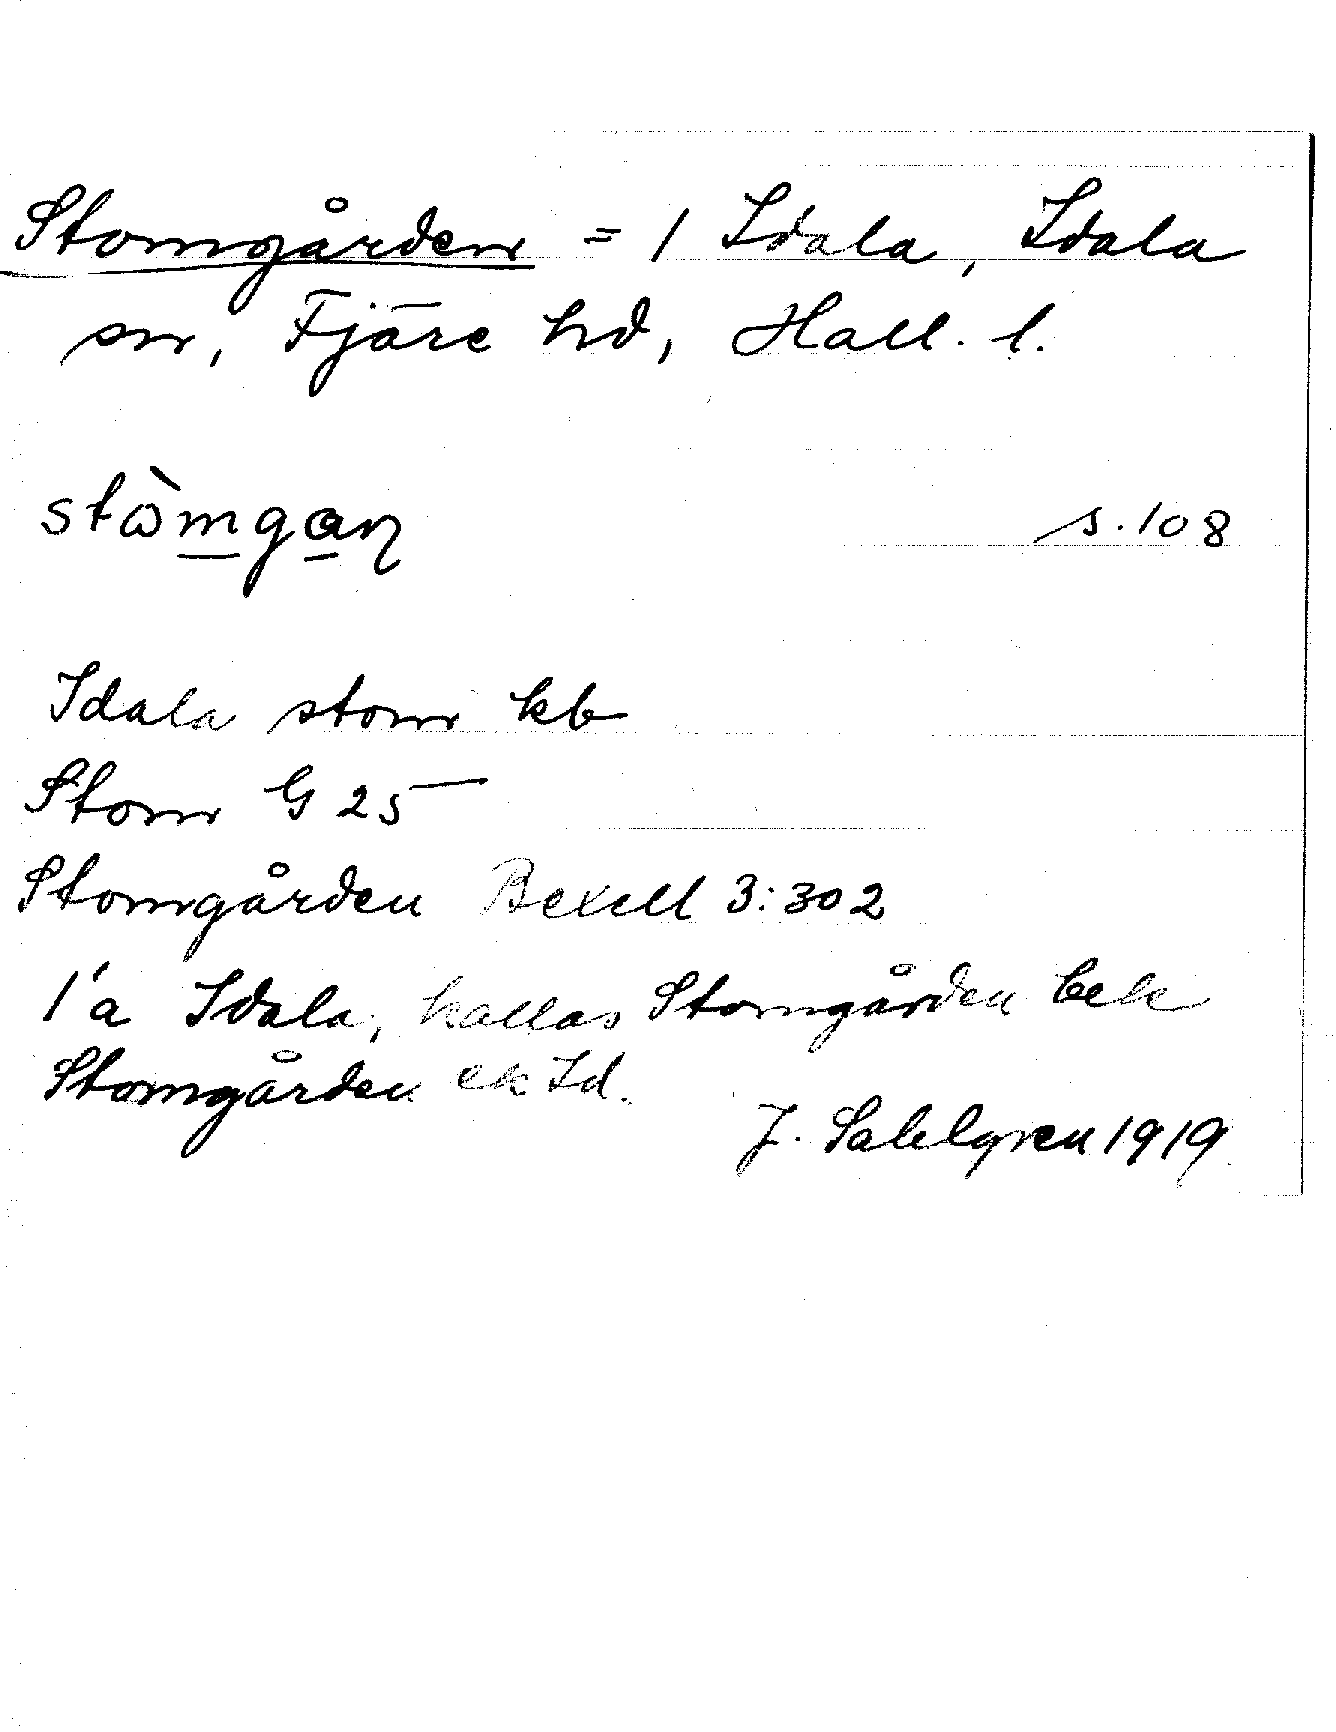 Stomgården = 1 Idala, Idala
sn, Fjäre hd, Hall. l.
stòmgan s. 108
Idala stom kb
Stom G 25
Stomgården Bexell 3:302
1'a Idala, kallas Stomgården bek
Stomgården ek Id.
J. Sahlgren 1919